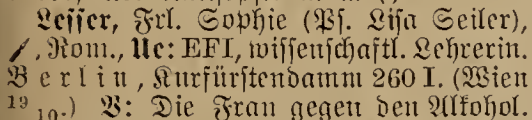 Lesser, Frl. Sophie (Ps. Lisa Seiler),
Rom., Ue: EFI, wissenschaftl. Lehrerin.
Berlin, Kurfürstendamm 260 I. (Wien
19 10.) V: Die Frau gegen den Alkohol.